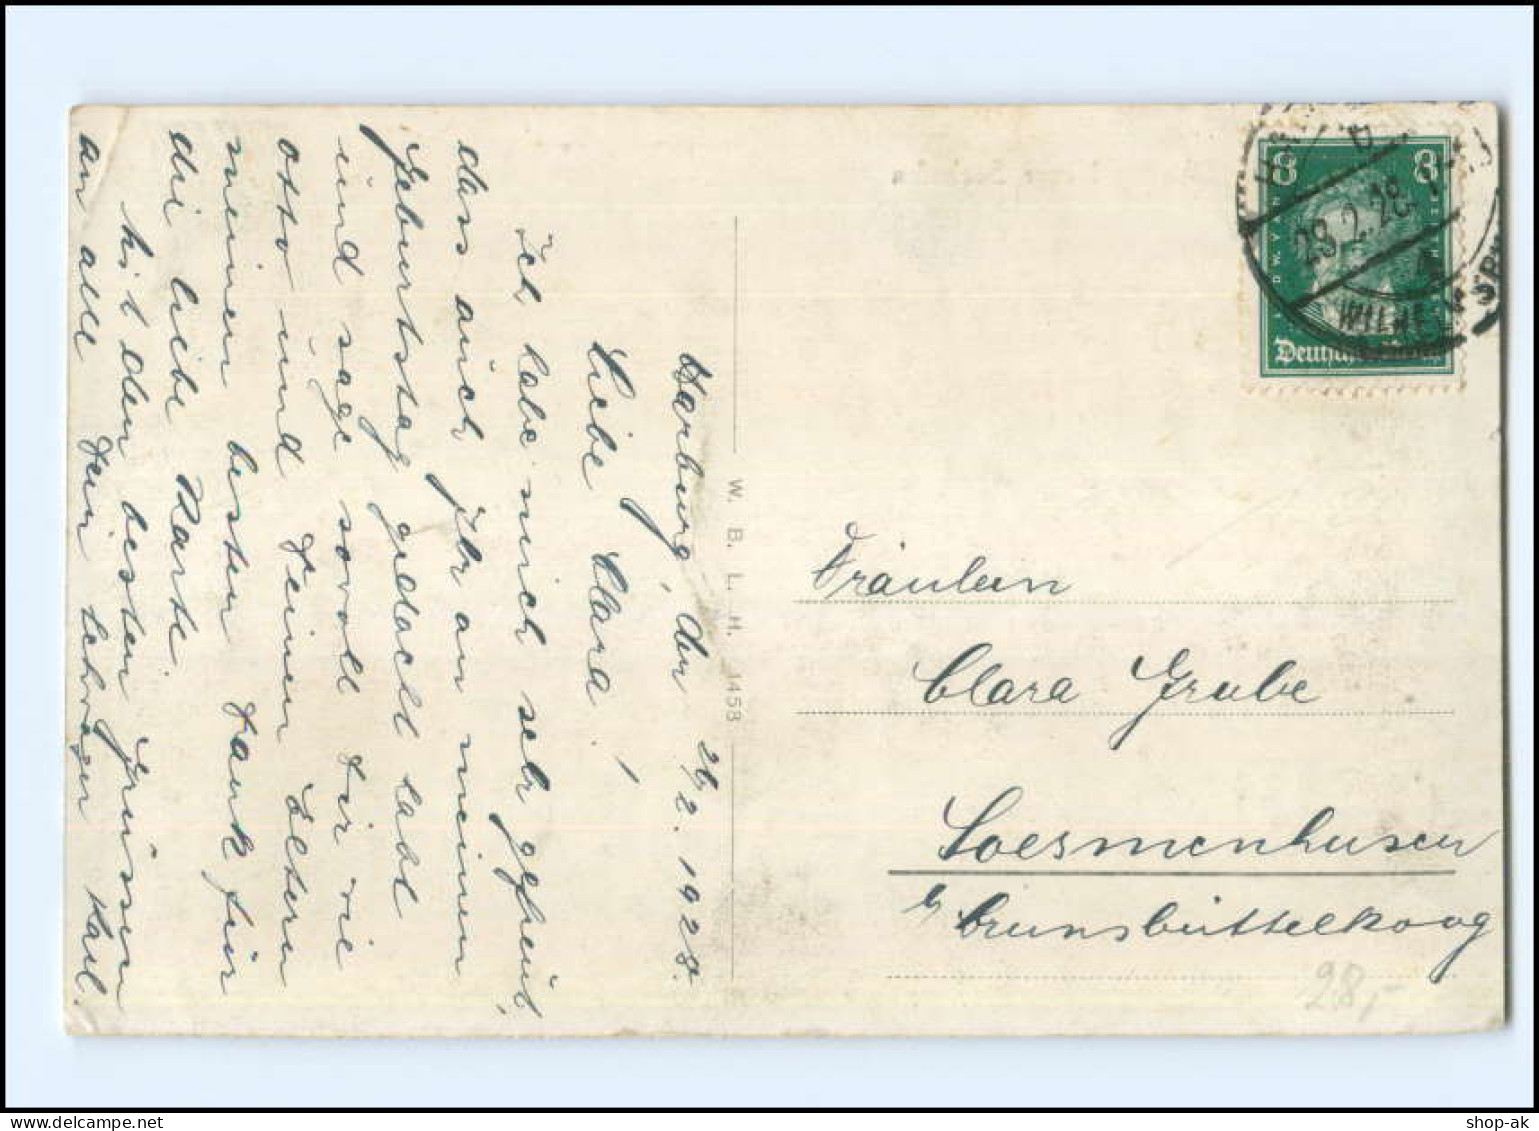 Harburg, den 26/2.1928.
Liebe Clara!
Ich habe mich sehr gefreut,
dass auch Ihr an meinen
Geburtstag gedacht habt
und sage sowoll Dir wie
Otto und Deinen Eltern
meinen besten Dank für
die liebe Karte.
Mit den besten Grüssen
an alle Dein Schwager Karl.
W. B. L. H. 1458
8 8
29.2.28
WILHELMSBU
Deutsches Reich
Fräulein
Clara Grube
Soesmenhusen
b/ Brunsbüttelkoog
28,-
shop-ak